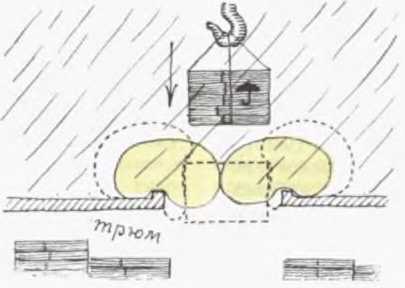 трюм